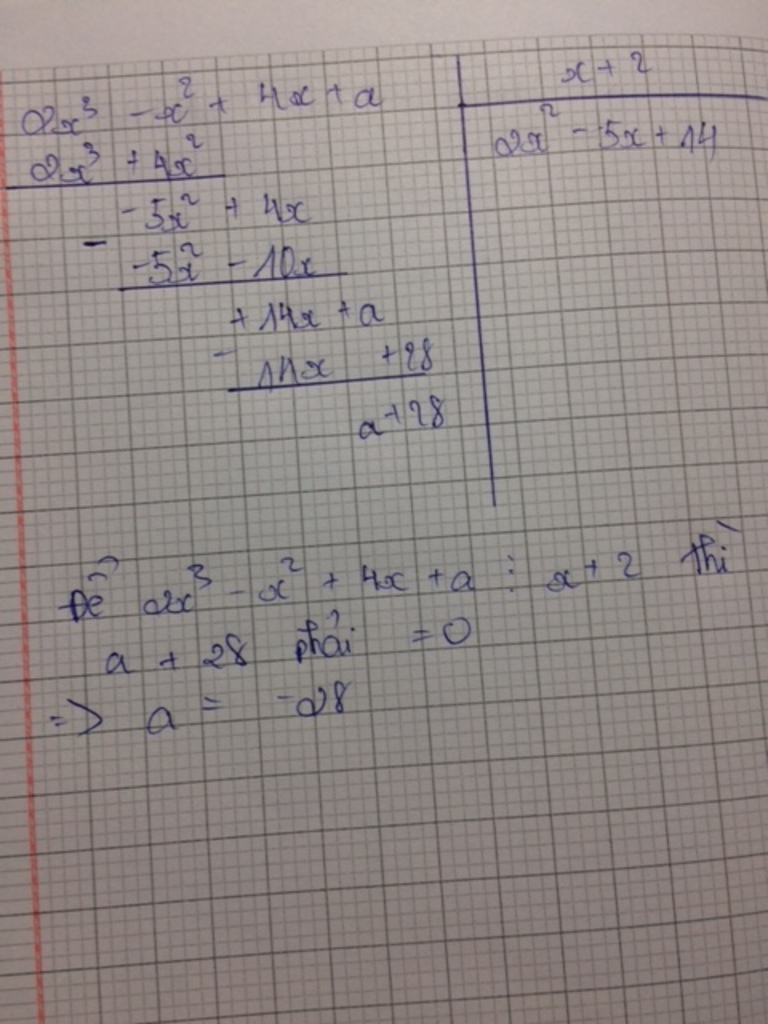 2x³ - x² + 4x + a
x + 2
2x³ + 4x²
2x² - 5x + 14
-5x² + 4x
-
-5x² - 10x
+ 14x + a
-
14x + 28
a + 28
Để 2x³ - x² + 4x + a ⋮ x + 2 thì
a + 28 phải = 0
=> a = -28